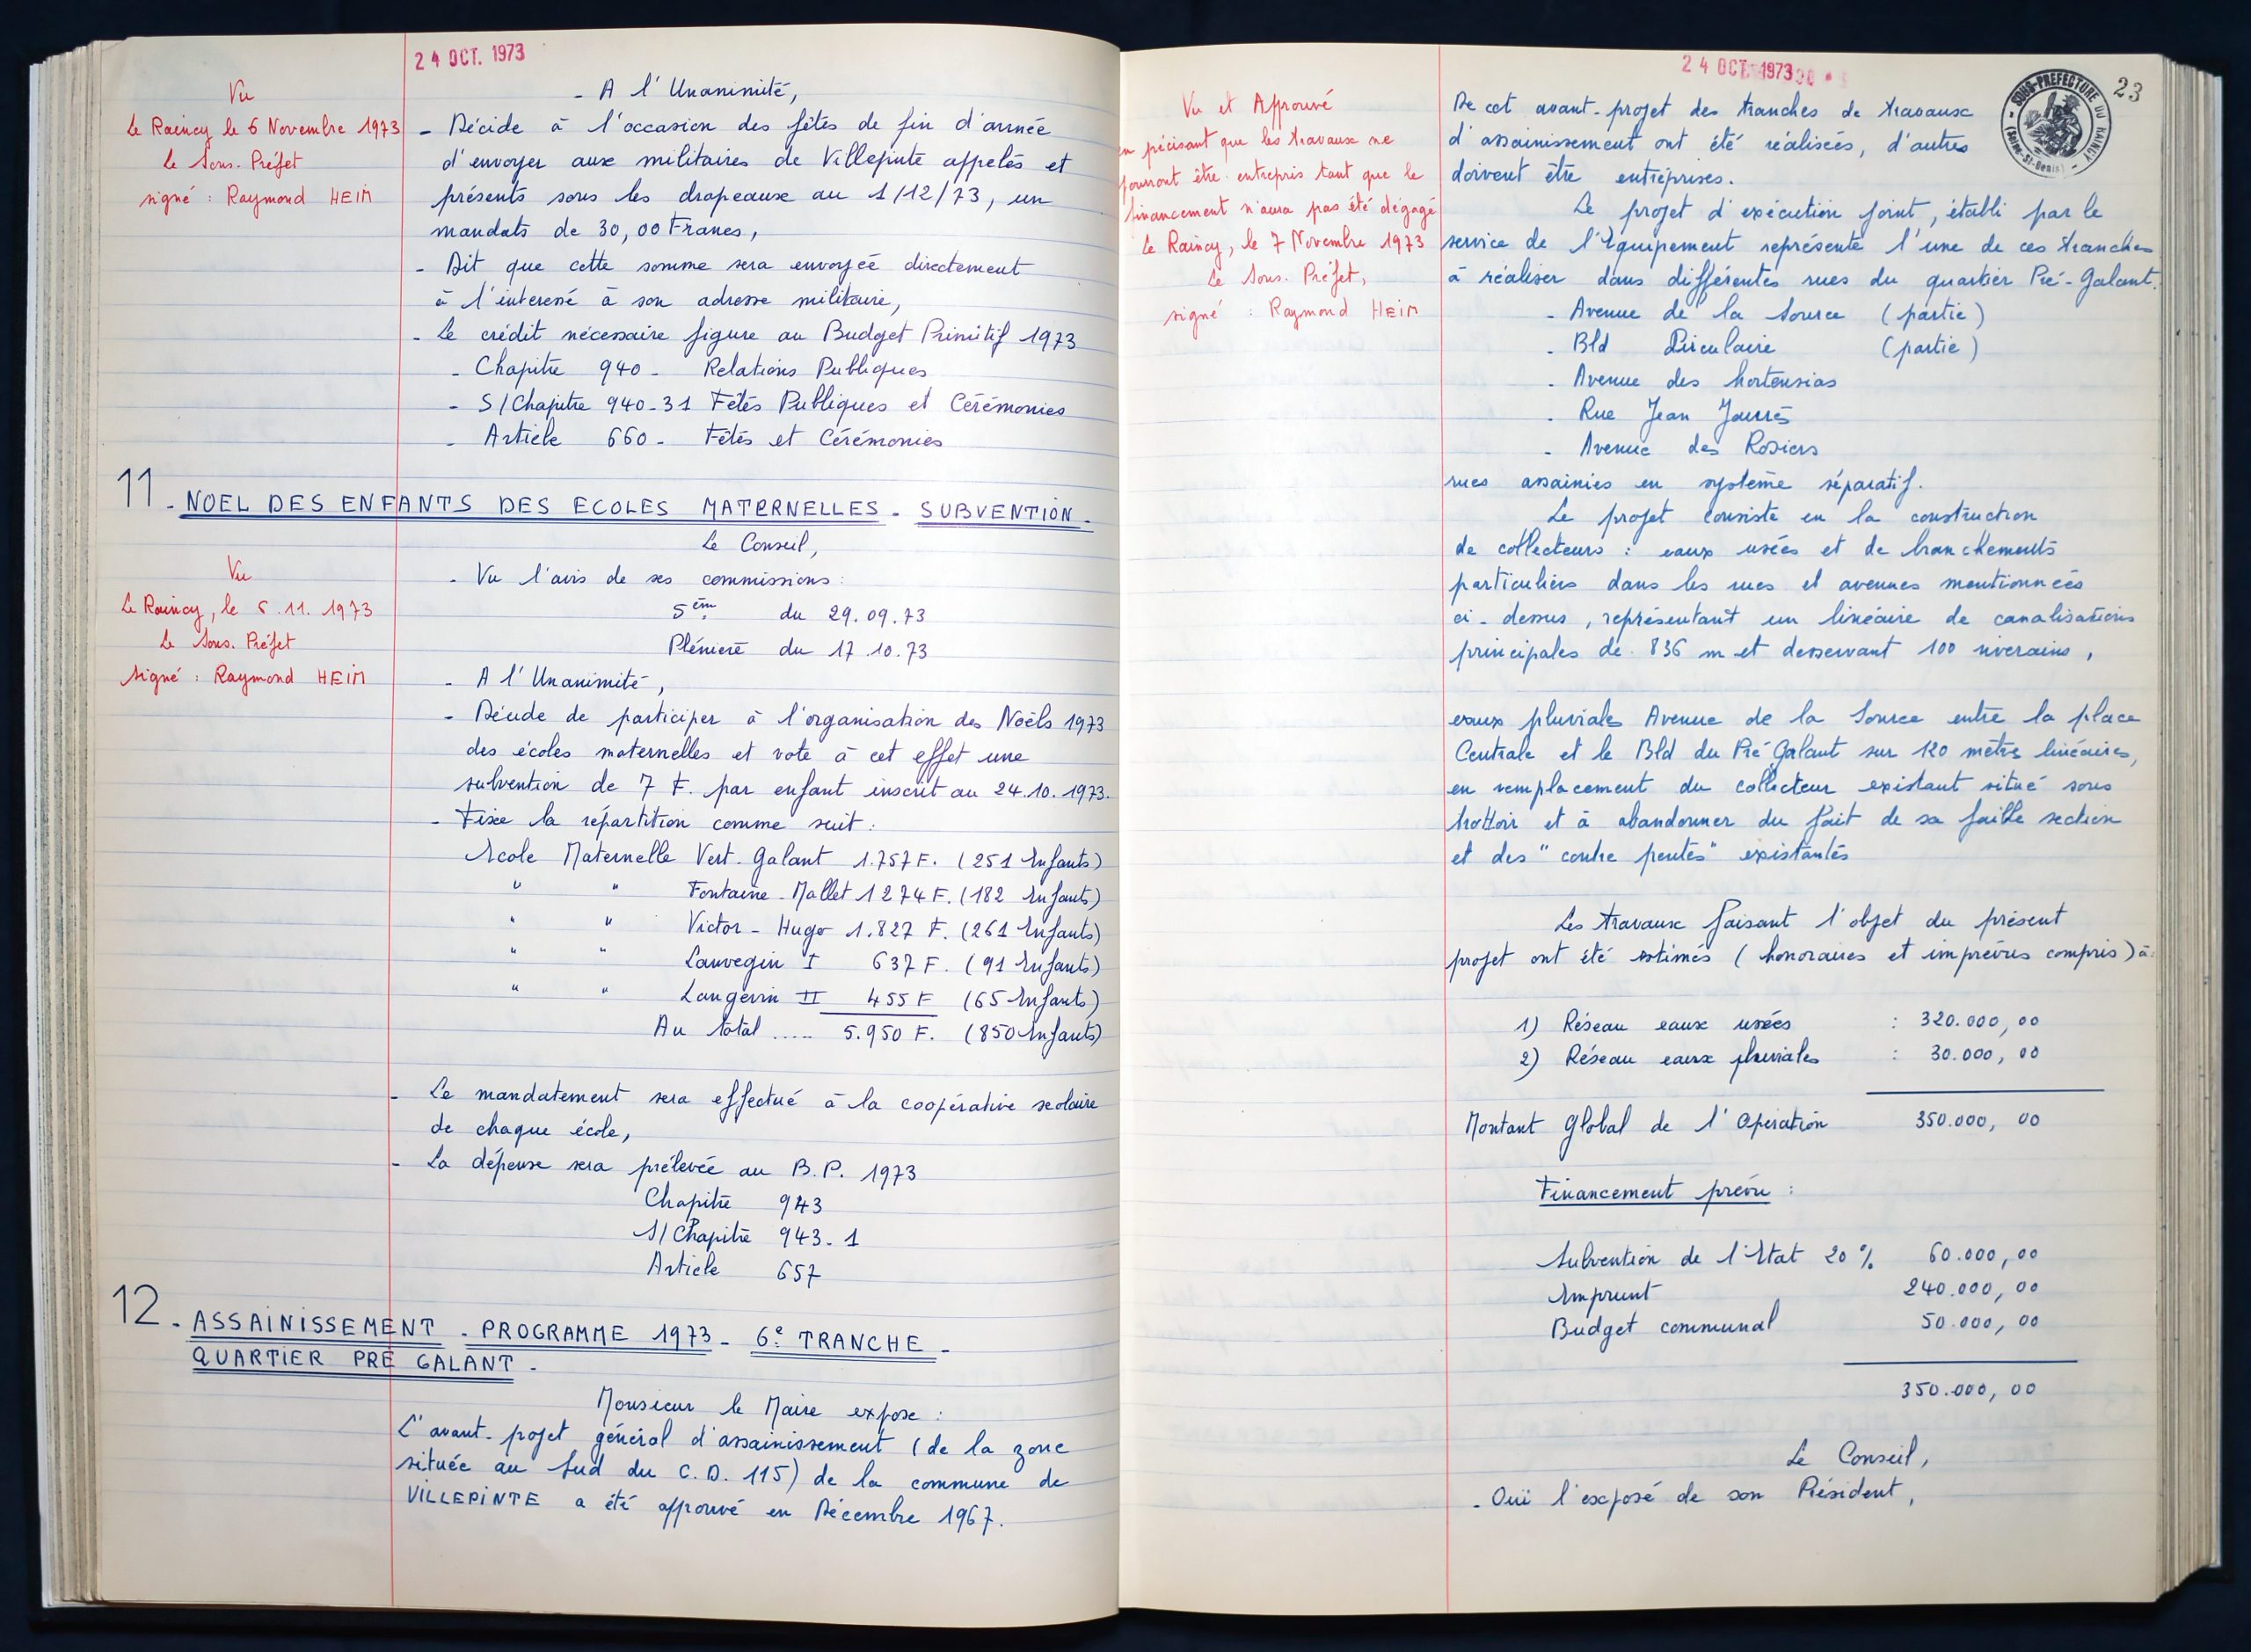 24 OCT. 1973
Vu
Le Raincy le 6 Novembre 1973
Le Sous-Préfet
signé : Raymond HEIM
- A l'Unanimité,
- Décide à l'occasion des fêtes de fin d'année
d'envoyer aux militaires de Villepinte appelés et
présents sous les drapeaux au 1/12/73, un
mandats de 30,00 Francs,
- Dit que cette somme sera envoyée directement
à l'interessé à son adresse militaire,
- Le crédit nécessaire figure au Budget Primitif 1973
- Chapitre 940 - Relations Publiques
- S/Chapitre 940-31 Fêtes Publiques et Cérémonies
- Article 660 - Fêtes et Cérémonies
11 - NOEL DES ENFANTS DES ECOLES MATERNELLES - SUBVENTION -
Vu
Le Raincy, le 6.11.1973
Le Sous-Préfet
signé : Raymond HEIM
Le Conseil,
- Vu l'avis de ses commissions :
5ém du 29.09.73
Plénière du 17.10.73
- A l'Unanimité,
- Décide de participer à l'organisation des Noëls 1973
des écoles maternelles et vote à cet effet une
subvention de 7 F. par enfant inscrit au 24.10.1973.
- Fixe la répartition comme suit :
Ecole Maternelle Vert-Galant 1.757 F. (251 Enfants)
" " Fontaine-Mallet 1274 F. (182 Enfants)
" " Victor-Hugo 1.827 F. (261 Enfants)
" " Lanvegin I 637 F. (91 Enfants)
" " Langevin II 455 F (65 Enfants)
Au total ..... 5.950 F. (850 Enfants)
- Le mandatement sera effectué à la coopérative scolaire
de chaque école,
- La dépense sera prélevée au B.P. 1973
Chapitre 943
S/Chapitre 943-1
Article 657
12 - ASSAINISSEMENT - PROGRAMME 1973 - 6e TRANCHE -
QUARTIER PRE GALANT -
Monsieur le Maire expose :
L'avant-projet général d'assainissement (de la zone
située au Sud du C.D. 115) de la commune de
VILLEPINTE a été approuvé en Décembre 1967.
24 OCT. 1973
23
SOUS-PREFECTURE DU RAINCY
(Seine-St-Denis)
Vu et Approuvé
en précisant que les travaux ne
pourront être entrepris tant que le
financement n'aura pas été dégagé
Le Raincy, le 7 Novembre 1973
Le Sous-Préfet,
signé : Raymond HEIM
De cet avant-projet des tranches de travaux
d'assainissement ont été réalisées, d'autres
doivent être entreprises.
Le projet d'exécution joint, établi par le
service de l'Equipement représente l'une de ces tranches
à réaliser dans différentes rues du quartier Pré-Galant.
- Avenue de la Source (partie)
- Bld Circulaire (partie)
- Avenue des hortensias
- Rue Jean Jaurès
- Avenue des Rosiers
rues assainies en système séparatif.
Le projet consiste en la construction
de collecteurs : eaux usées et de branchements
particuliers dans les rues et avenues mentionnées
ci-dessus, représentant un linéaire de canalisations
principales de 836 m et desservant 100 riverains,
eaux pluviales Avenue de la Source entre la place
Centrale et le Bld du Pré Galant sur 120 mètres linéaires,
en remplacement du collecteur existant situé sous
trottoir et à abandonner du fait de sa faible section
et des "contre pentes" existantes
Les travaux faisant l'objet du présent
projet ont été estimés (honoraires et imprévus compris) à :
1) Réseau eaux usées : 320.000,00
2) Réseau eaux pluviales : 30.000,00
Montant global de l'Opération 350.000,00
Financement prévu :
Subvention de l'Etat 20 % 60.000,00
Emprunt 240.000,00
Budget communal 50.000,00
350.000,00
Le Conseil,
- Ouï l'exposé de son Président,